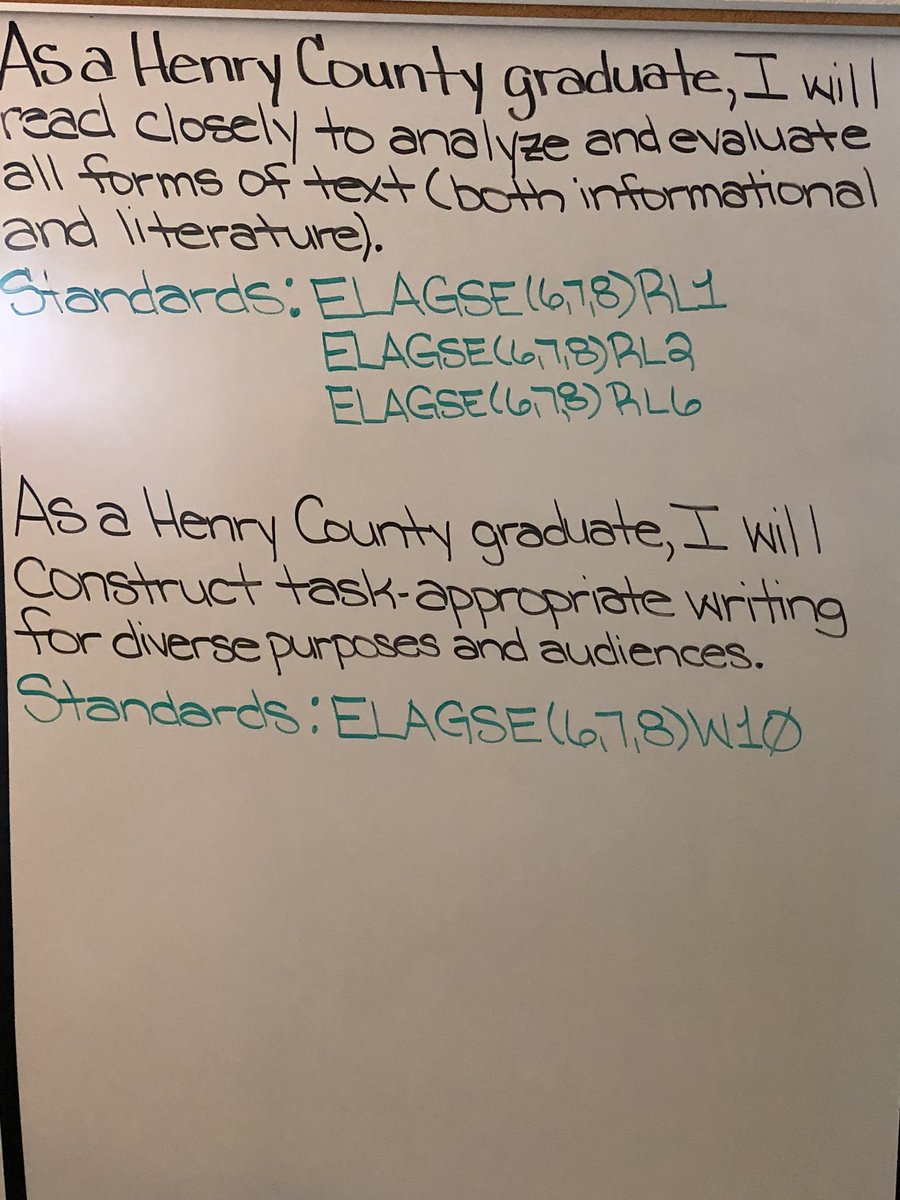 As a Henry County graduate, I will
read closely to analyze and evaluate
all forms of text (both informational
and literature).
Standards: ELAGSE(6,7,8)RL1
ELAGSE(6,7,8)RL2
ELAGSE(6,7,8)RL6
As a Henry County graduate, I will
Construct task-appropriate writing
for diverse purposes and audiences.
Standards: ELAGSE(6,7,8)W10